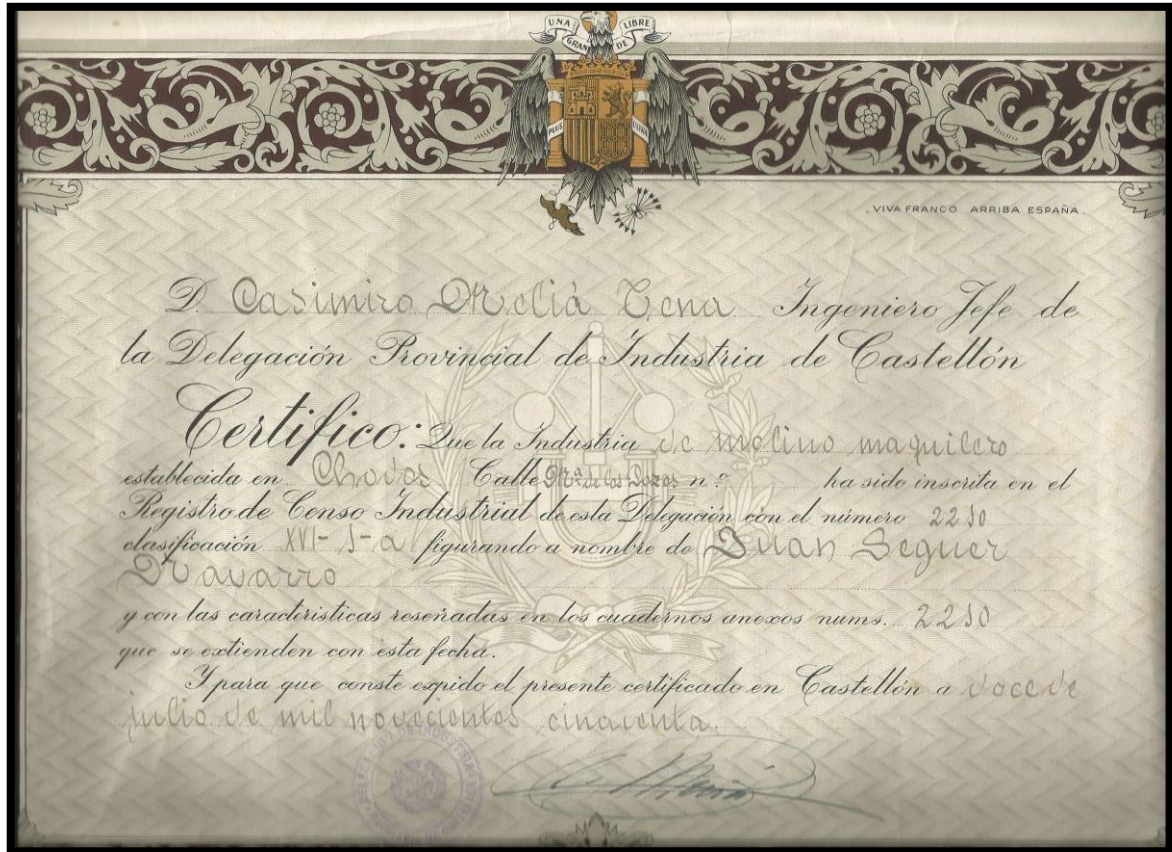 UNA GRANDE LIBRE
PLUS ULTRA
VIVA FRANCO ARRIBA ESPAÑA.
D. Casimiro Meliá Tena Ingeniero Jefe de
la Delegación Provincial de Industria de Castellón
Certifico: Que la Industria de molino maquilero
establecida en Chodos Calle Mª de los Dozos n.º ha sido inscrita en el
Registro de Censo Industrial de esta Delegación con el número 2210
clasificación XVI-1-a figurando a nombre de Juan Seguer
Navarro
y con las características reseñadas en los cuadernos anexos nums. 2210
que se extienden con esta fecha.
Y para que conste expido el presente certificado en Castellón a doce de
julio de mil novecientos cincuenta.